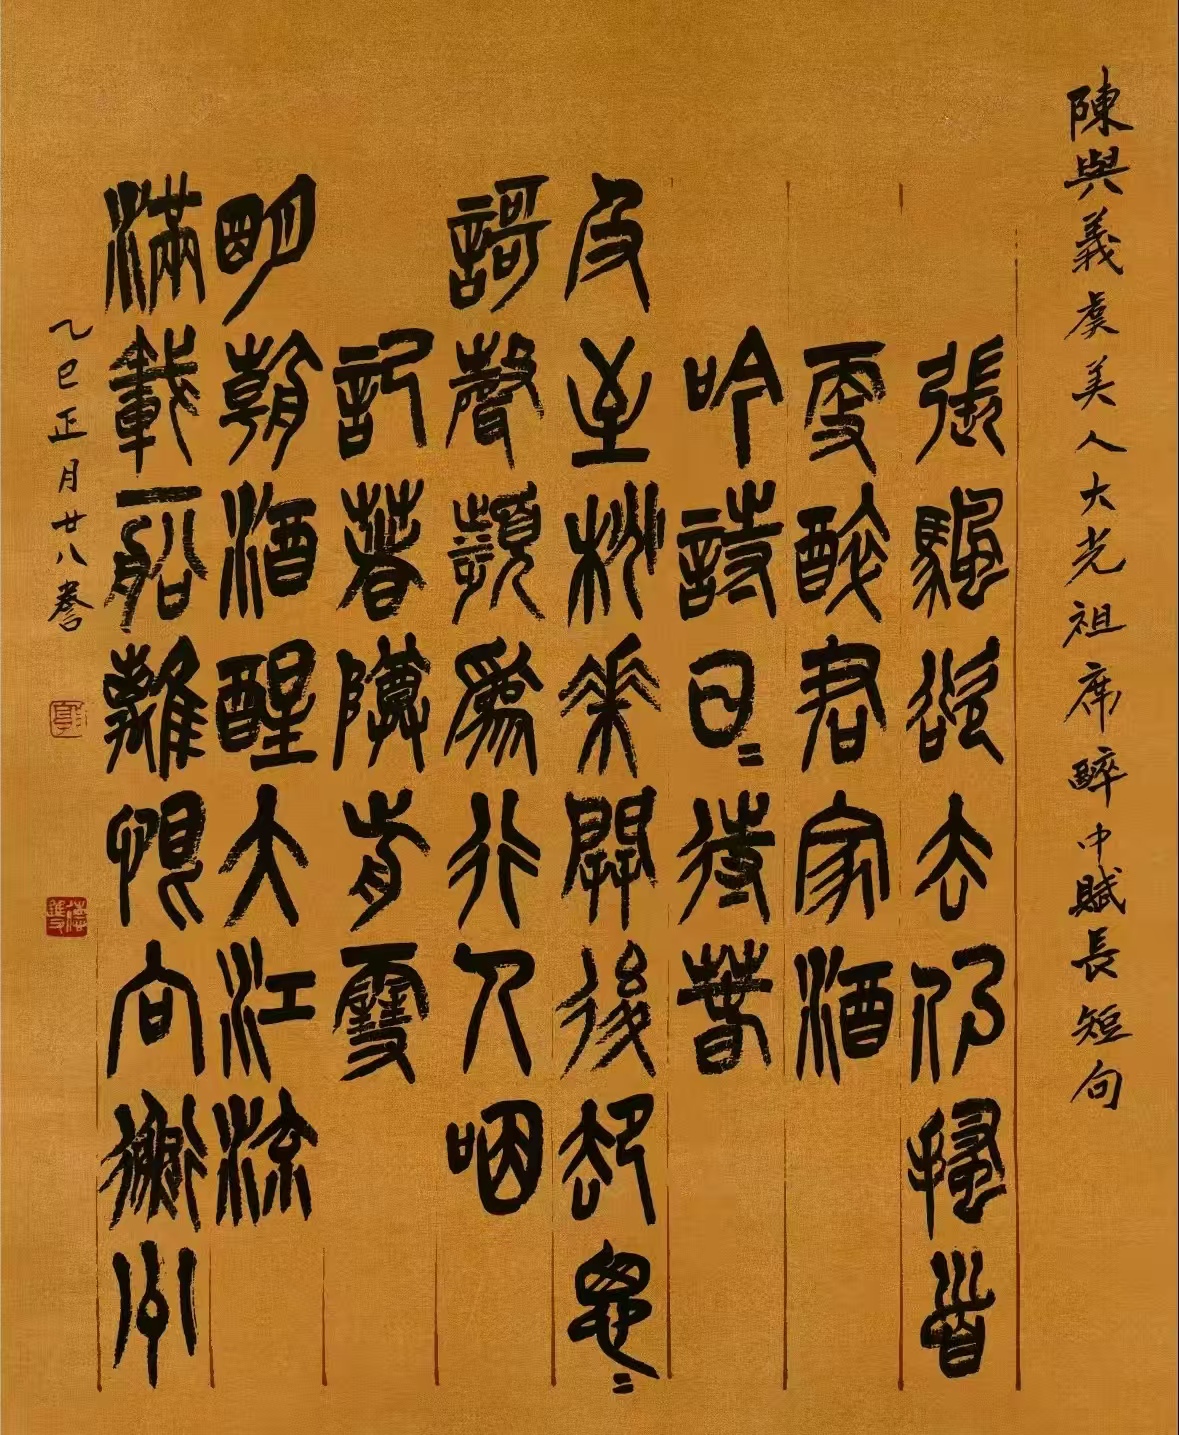 陳與義虞美人大光祖席醉中賦長短句
張颿欲去仍搔首
更醉君家酒
吟詩日〻待春
及至桃花開後却匆〻
謌聲頻為行人咽
記著尊前雪
明朝酒醒大江流
滿載一船離恨向衡州
乙巳正月廿八謄